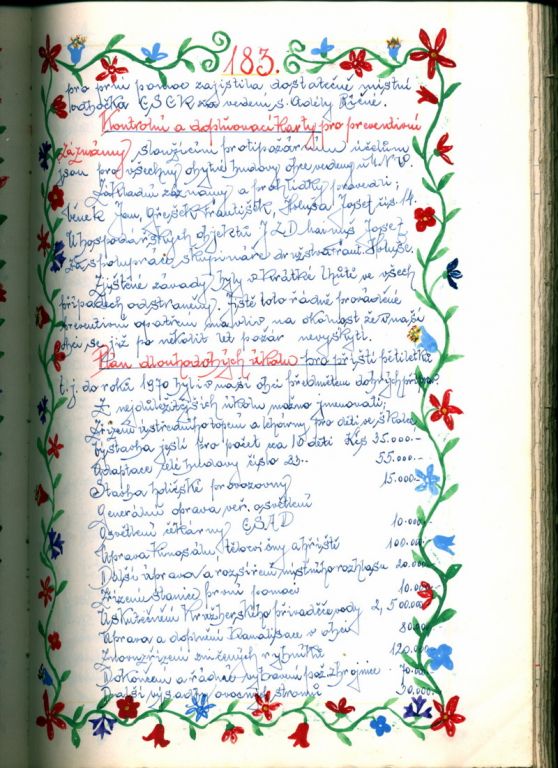 183.
pro prvu pomoc zajistila dostatečně místní
odbočka ČSČK za vedení s. Adély
Kontrolní a doplňovací karty pro preventivní
záznamy, sloužícím protipožárnímu účelům
jsou pro všechny obytné budovy obce vedeny u MNV.
Základní záznamy a prohlídky provedli;
Jan, Orešek František, Holuša Josef čís. 14.
U hospodářských objektů JZD Josef
za spolupráce skupináře
Zjištěné závady byly v krátké lhůtě ve všech
případech odstraněny. Jistě toto řádně prováděné
preventivní opatření má vliv na okolnost že v naší
obci se již po několik let požár nevyskytl.
Plán dlouhodobých úkolů pro příští pětiletku
t.j. do roku 1970 byl i v naší obci předmětem dobrých
Z nejdůležitějších úkolů možno jmenovati;
Zřízení ústředního topení a lehárny pro děti ve škole
Výstavba jeslí pro počet ca 10 dětí Kčs 35.000.-
Adaptace celé budovy číslo 23.- 55.000.-
Stavba holičské provozovny 15.000.-
Generální oprava veř. osvětlení
Osvětlení čekárny ČSAD 10.000.-
Úprava kinosálu, tělocvičny a hřiště 100.000.-
Další úprava a rozšíření místního rozhlasu 20.000.-
Zřízení stanice první pomoci 10.000.-
Uskutečnění přivaděče vody 2,500.000.-
Úprava a doplnění kanalisace v obci 80.000.-
Znovuzřízení zničených rybníků 120.000.-
Dokončení a řádné vybavení pož. zbrojnice 70.000.-
Další výsadby ovocných stromů 30.000.-